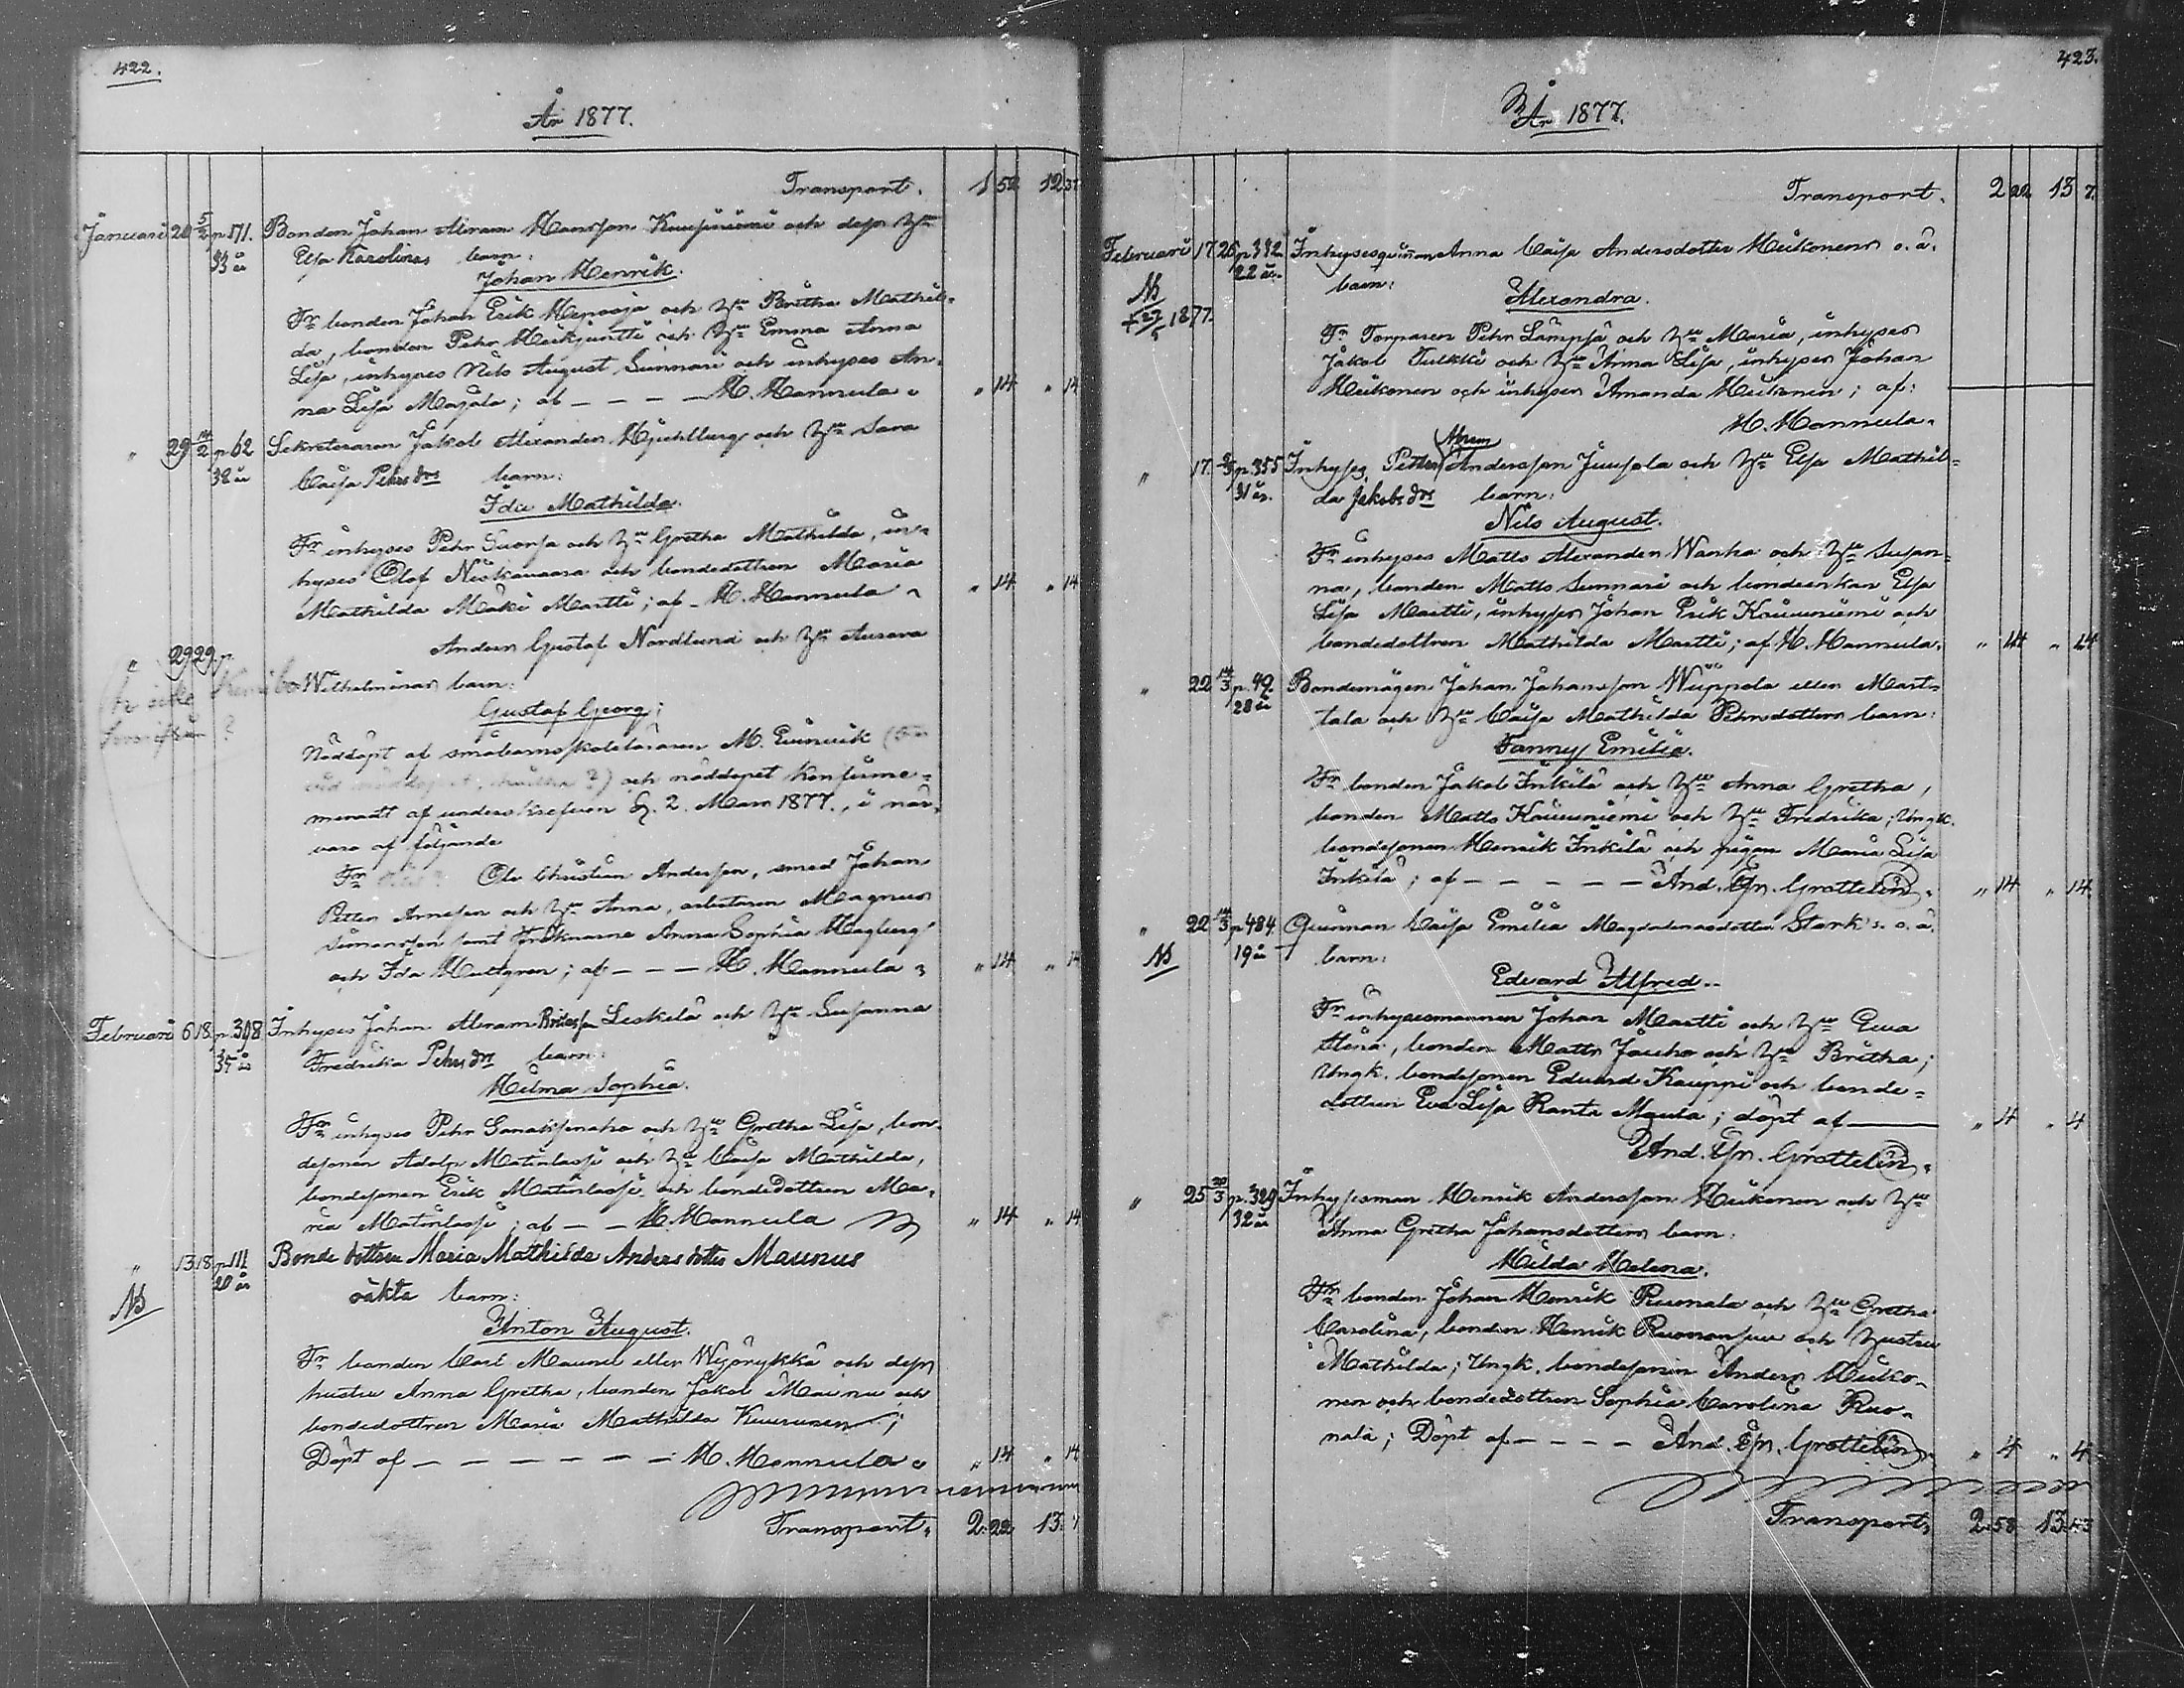 422.
År 1877.
Transport. 1 52 12 37
Januari 20 5/2 p 171. Bonden Johan Abram Hansson Kuusiniemi och dess H:u
33 år Elsa Karolinas barn:
Johan Henrik.
Fr bonden Johan Erik Heposija och H:u Britha Mathil-
da, bonden Pehr Heikjuntti och H:u Emma Anna
Lisa, inhyses Nils August Sunnari och inhyses An-
na Lisa Majala; af — — — — H. Hannula. " 14 " 14
" 29 14/2 p 62 Sekreteraren Jakob Alexander Hjuhlberg och H:u Sara
38 år Caisa Pehrs drs barn:
Ida Mathilda.
Fr inhyses Pehr Suorsa och H:u Gretha Mathilda, in-
hyses Olof Niskavaara och bondedottren Maria
Mathilda Mäki Martti; af — H. Hannula " 14 " 14
Anders Gustaf Nordlund och H:u Aurora
" 29 29 p.
Är icke Wilhelminas barn:
Gustaf Georg;
Nöddöpt af småbarnsskoleläraren M. Evinvik
och nöddopet konfirme-
menadt af underskrefven d. 2. Mars 1877., i när-
varo af följande
Fr Ole Christian Andersen, smed Johan
Petter Arnesen och H:u Anna, arbetaren Magnus
Simonsen samt fröknarne Anna Sophia Hagberg
och Ida Hultgren; af — — — H. Hannula " 14 " 14
Februari 6 18 p 398 Inhyses Johan Abram Leskelä och H:u Susanna
35 år Fredrika Pehrs drs barn:
Hilma Sophia.
Fr inhyses Pehr Sanaksenaho och H:u Gretha Lisa, bon-
desonen Adolf Matinlassi och H:u Caisa Mathilda,
bondesonen Erik Matinlassi och bondedottren Ma-
ria Matinlassi; af — — H. Hannula " 14 " 14
" 13 18 p 111 Bonde dottren Maria Mathilda Anders dotter Maunus
20 år oäkta barn:
NB
Anton August.
Fr bonden Carl Maunu eller Wejörykkä och dess
hustru Anna Gretha, bonden Jakob Maunu och
bondedottren Maria Mathilda Kuurunen;
Döpt af — — — — — — H. Hannula. " 14 " 14
Transport. 2: 22 13: 7
423.
År 1877.
Transport. 2 22 13 7.
Februari 17 26 p 382 Inhysesqvinnan Anna Caisa Andersdotter Heikonens o. ä.
22 år. barn:
NB
Alexandra.
+ 27/5 1877.
Fr Torparen Pehr Lämpsä och H:u Maria, inhyses
Jakob Tulkki och H:u Anna Lisa, inhyses Johan
Heikonen och inhyses Amanda Heikonen; af:
H. Hannula.
" 17. p. 355 Inhyses Petter Abram Andersson Juusola och H:u Elsa Mathil-
31 år. da Jakobs drs barn:
Nils August.
Fr inhyses Matts Alexander Wanha och H:u Susan-
na, bonden Matts Sunnari och bondeenkan Elsa
Lisa Martti, inhyses Johan Erik Kriuuniemi och
bondedottren Mathilda Martti; af H. Hannula. " 14 " 14
" 22 14/3 p. 49. Bondemågen Johan Johansson Wiippola eller Mart-
28 år tala och H:u Caisa Mathilda Pehrsdotters barn:
Fanny Emilia.
Fr bonden Jakob Inkilä och H:u Anna Gretha,
bonden Matts Kriuuniemi och H:u Fredrika; Ungk.
bondesonen Henrik Inkilä och pigan Maria Lisa
Inkilä; af — — — — — And. Gr. Grottelin. " 14 " 14.
" 22 14/3 p 484. Qvinnan Caisa Emilia Magdalenasdotter Stark's. o. ä.
NB 19 år barn:
Edvard Alfred.
Fr inhysesmannen Johan Martti och H:u Eva
Alena, bonden Matts Jauho och H:u Britha;
Ungk. bondesonen Edvard Kauppi och bonde-
dottren Eva Lisa Ranta Maula; döpt af — " 4 " 4
And. Gr. Grottelin.
" 25 20/3 p. 329 Inhysesman Henrik Andersson Heikonen och H:u
32 år Anna Gretha Johansdotters barn:
Hilda Helena.
Fr bonden Johan Henrik Ruonala och H:u Gretha
Carolina, bonden Henrik Ruonansuu och hustru
Mathilda; Ungk. bondesonen Anders Heiko-
nen och bondedottren Sophia Carolina Ruo-
nala; Döpt af — — — — And. Gr. Grottelin. " 4 " 4
Transport. 2: 58 13: 43